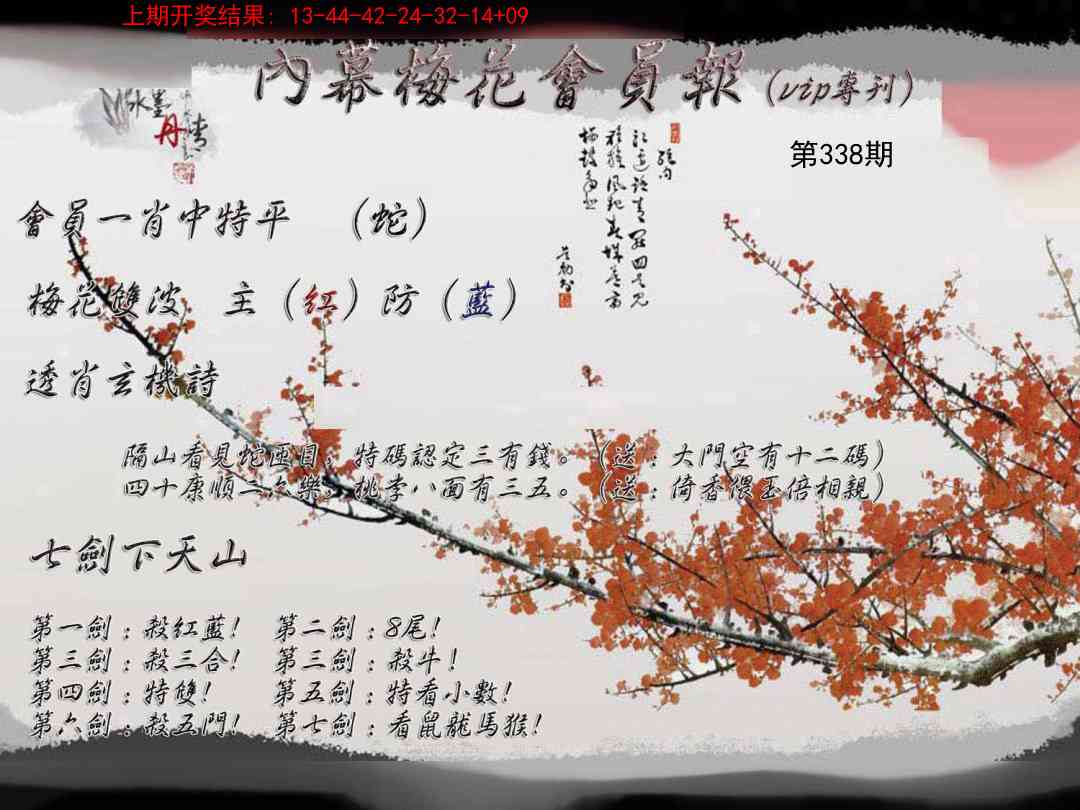 上期开奖结果: 13-44-42-24-32-14+09
內幕梅花會員報（vip專刊）
水墨丹青
第338期
會員一肖中特平　（蛇）
梅花雙波　主（紅）防（藍）
透肖玄機詩
隔山看見蛇匝目，特碼認定三有錢。（送：大門空有十二碼）
四十康順二六樂，桃李八面有三五。（送：倚香偎玉倍相親）
七劍下天山
第一劍：殺紅藍！　第二劍：8尾！
第三劍：殺三合！　第三劍：殺牛！
第四劍：特雙！　第五劍：特看小數！
第六劍：殺五門！　第七劍：看鼠龍馬猴！